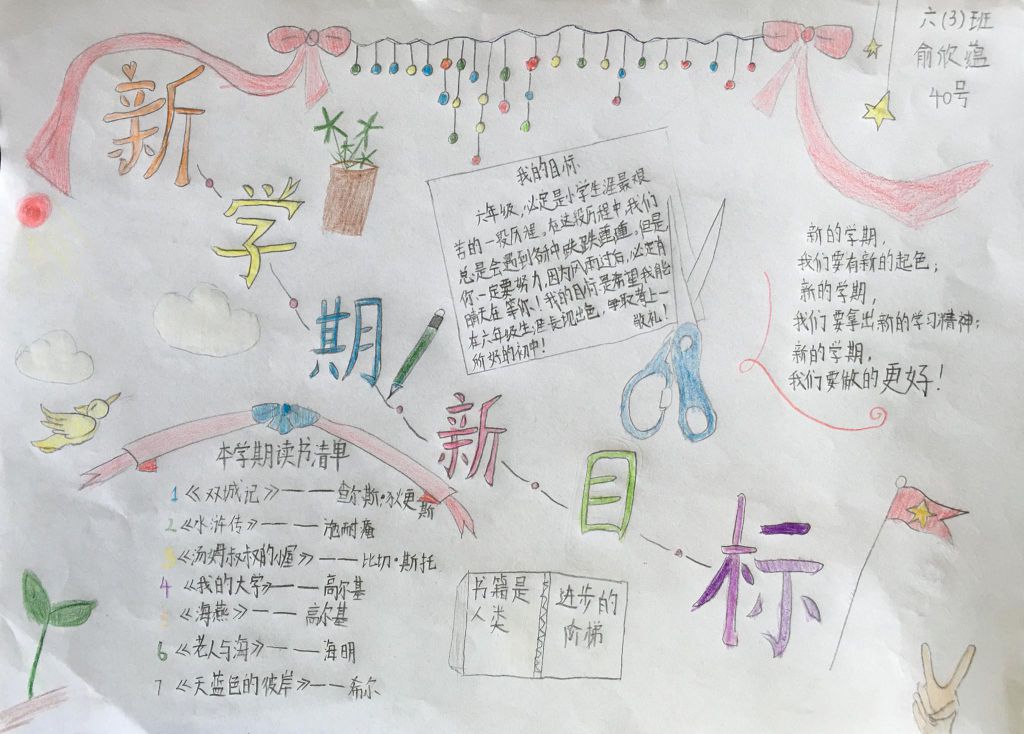 六(3)班
俞欣蕴
40号
新学期新目标
我的目标
六年级,必定是小学生涯最艰
苦的一段历程。在这段历程中,我们
总是会遇到各种跌跌撞撞。但是
你一定要努力,因为风雨过后,必定有
晴天在等你!我的目标是希望我能
在六年级生涯表现出色,争取考上一
所好的初中! 敬礼!
新的学期,
我们要有新的起色;
新的学期,
我们要拿出新的学习精神;
新的学期,
我们要做的更好!
本学期读书清单
1《双城记》——查尔斯·狄更斯
2《水浒传》——施耐庵
3《汤姆叔叔的小屋》——比切·斯托
4《我的大学》——高尔基
5《海燕》——高尔基
6《老人与海》——海明
7《天蓝色的彼岸》——希尔
书籍是
人类
进步的
阶梯